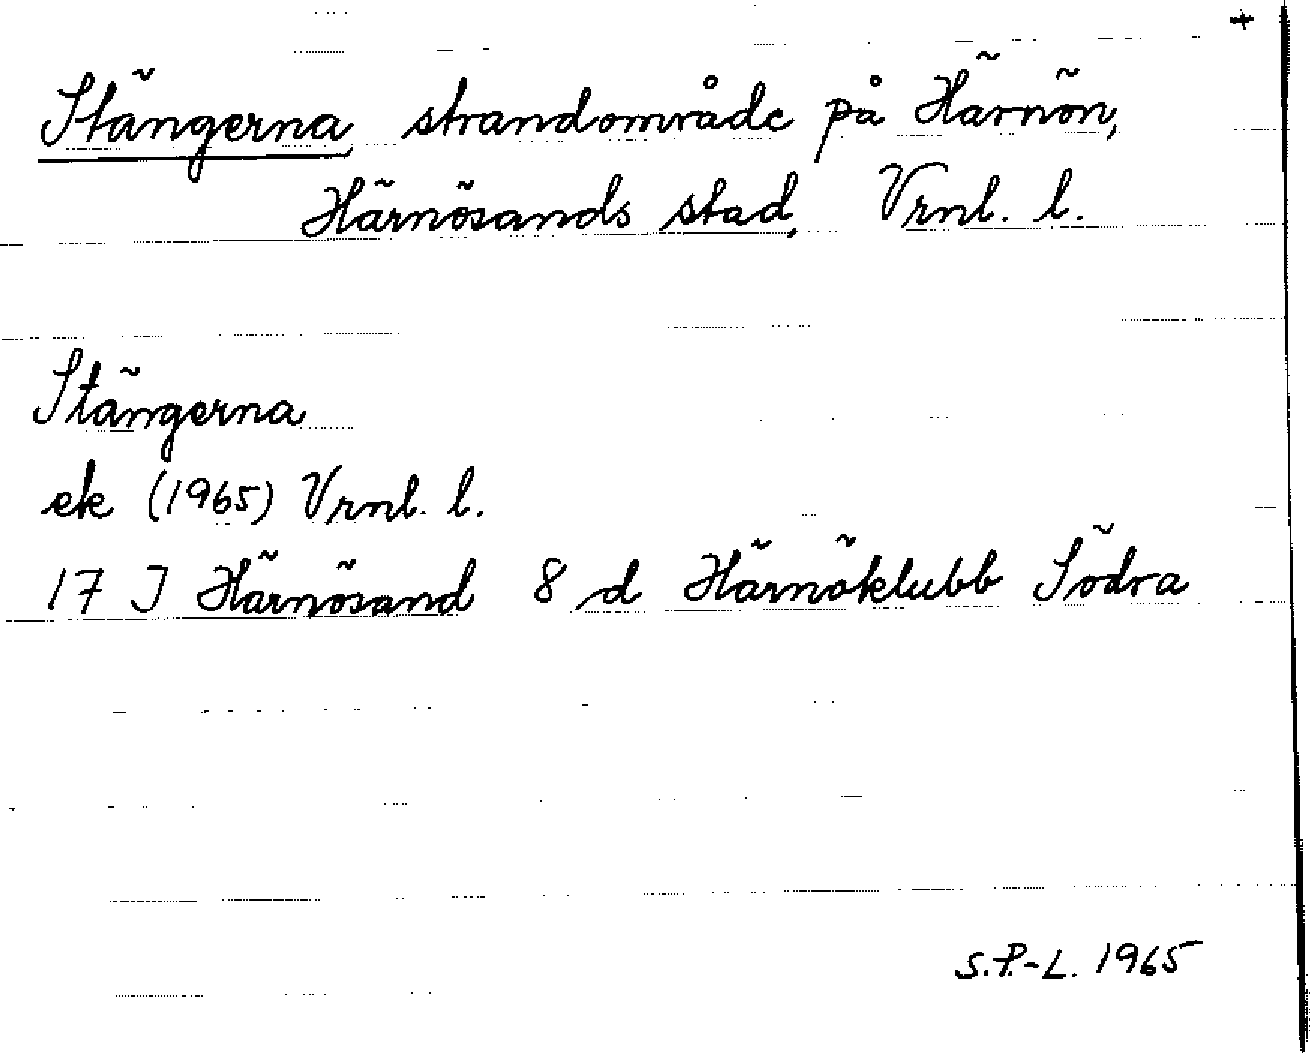 +
Stängerna, strandområde på Härnön,
Härnösands stad, Vrnl. l.
Stängerna
ek (1965) Vrnl. l.
17 J Härnösand 8 d Härnöklubb Södra
S.P.-L. 1965